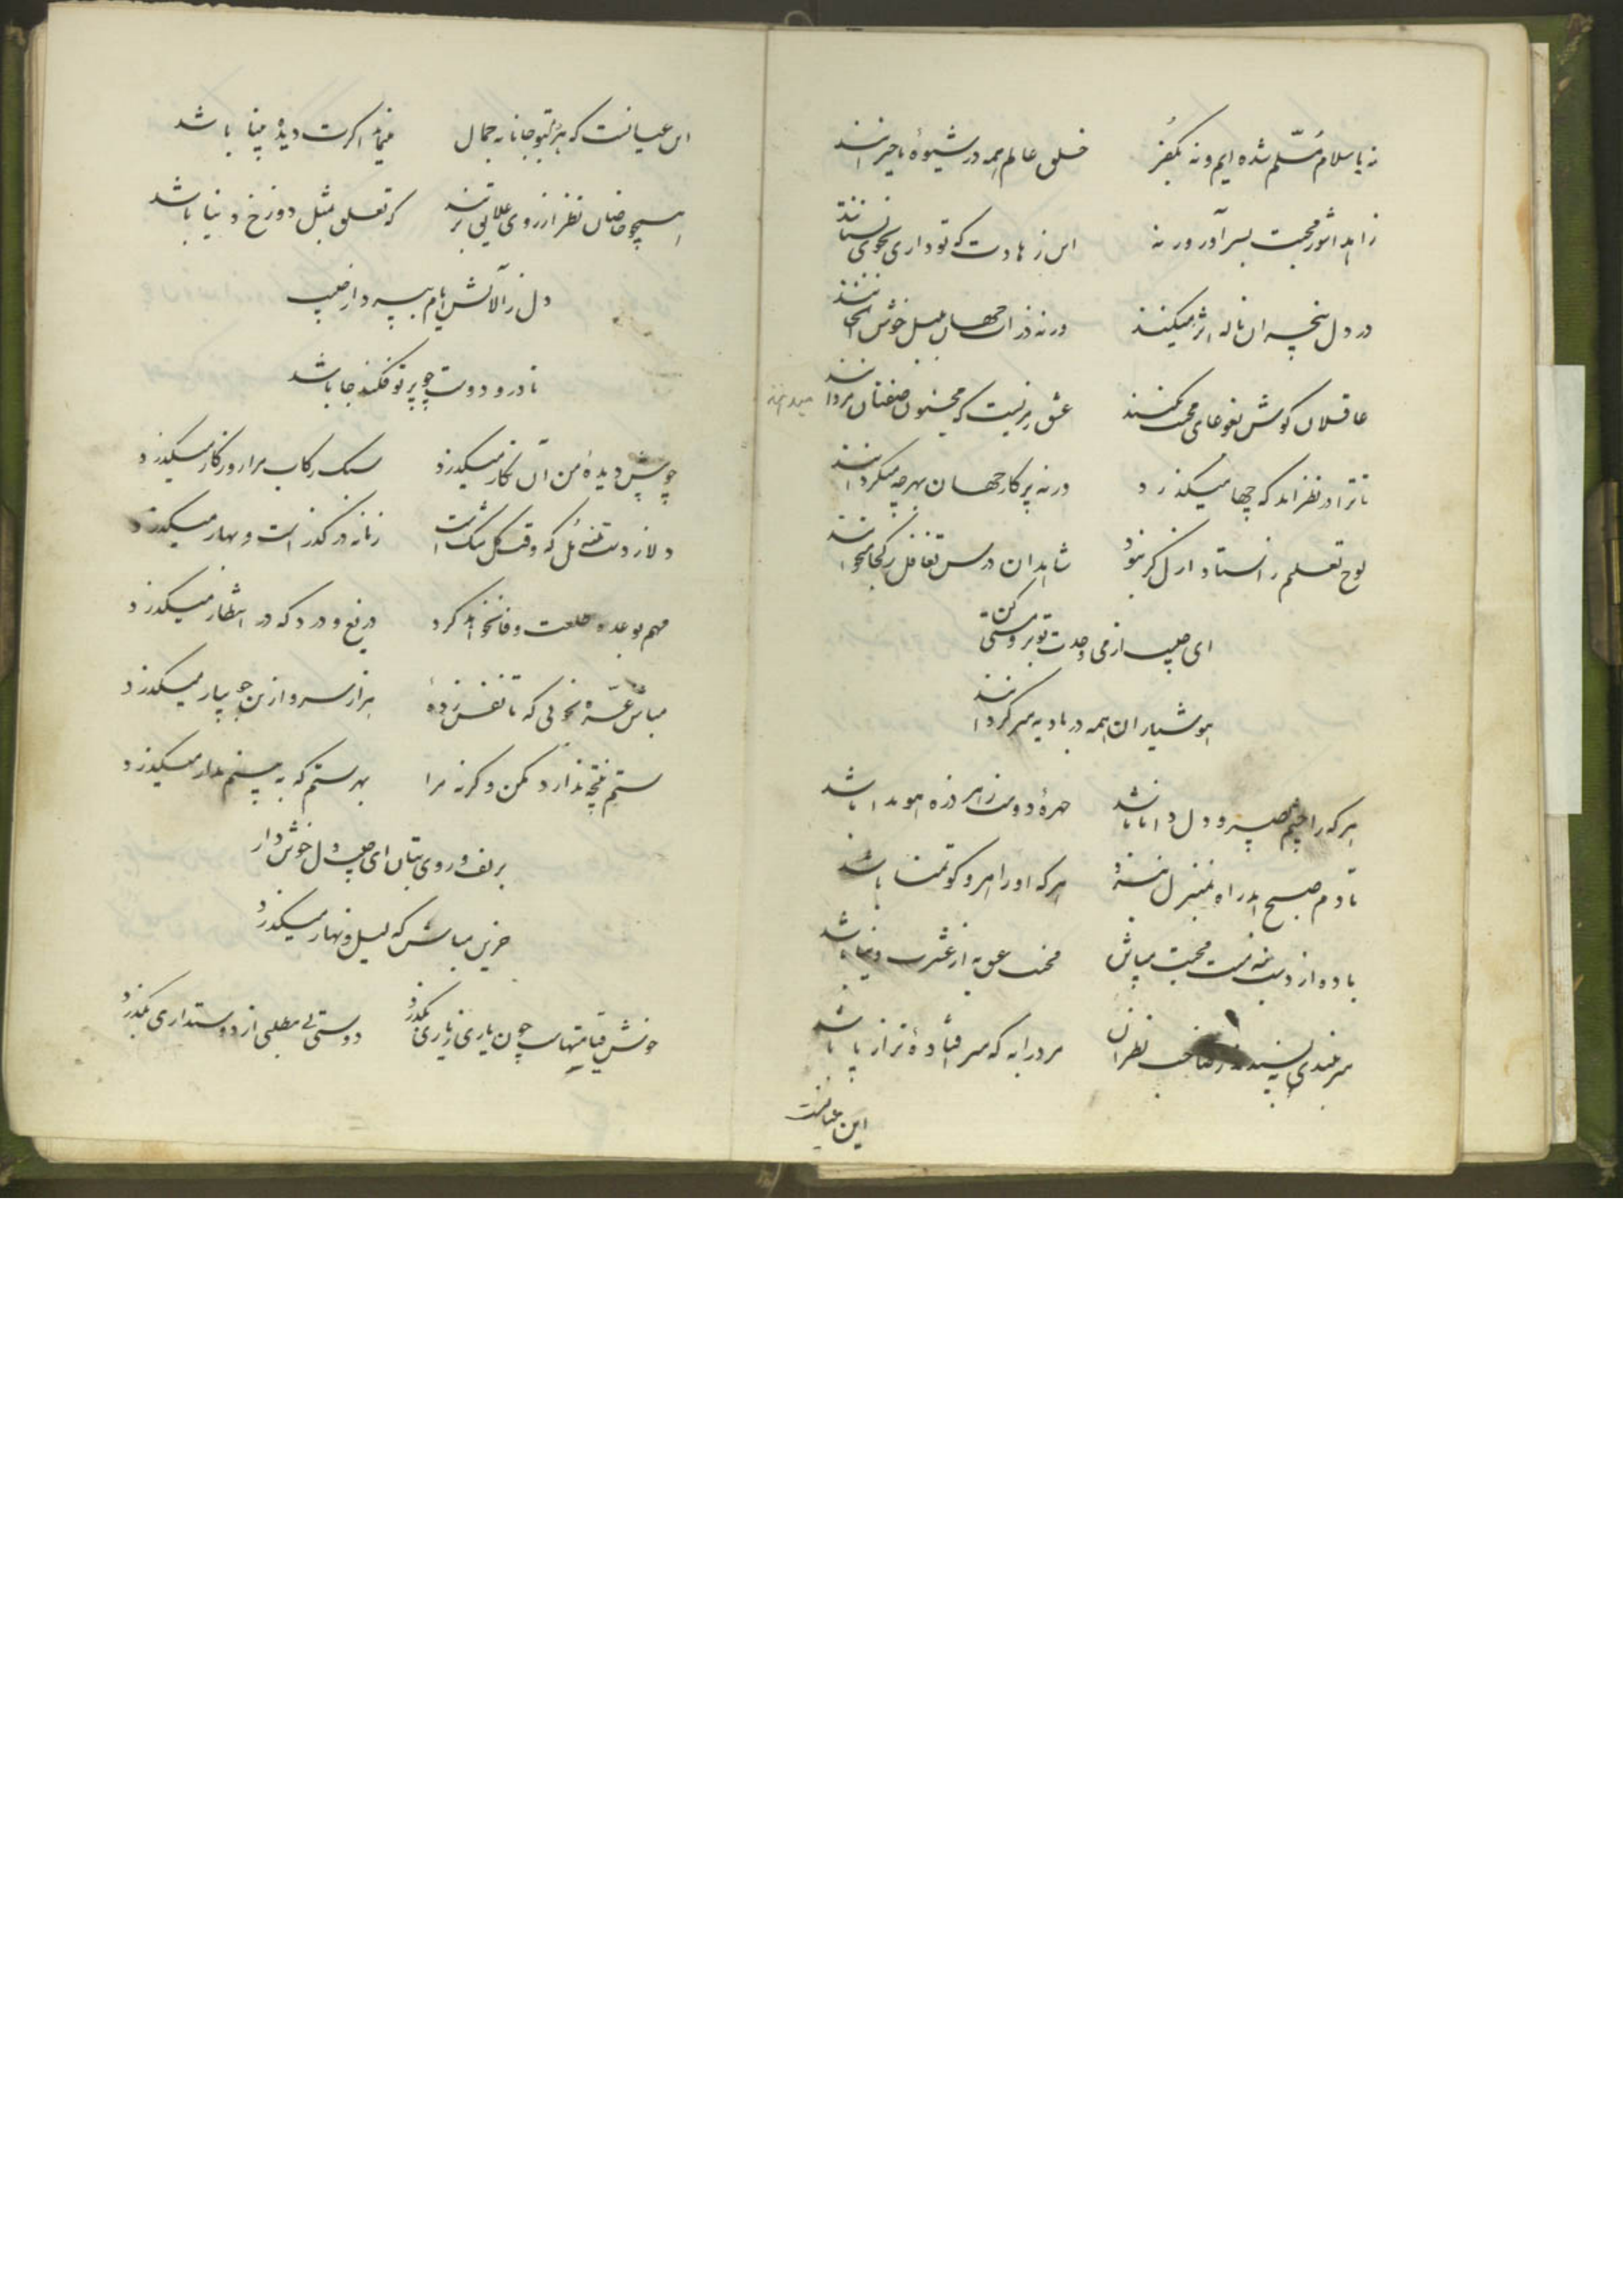 نه باسلام مسلم شده ایم و نه بکفر خلق عالم همه در شیوهٔ ما حیرانند
زاهدا شور محبت بسر آور ورنه این زهادت که تو داری بجوی نستانند
در دل بیخبران ناله اثر میکند ورنه ذرات جهان بلبل خوش الحانند
عاقلان کوش بغوغای محبت نکنند عشق رمزیست که مجنون صفتان میدانند
تا ترا در نظر اید که چها میکذرد ورنه پرکار جهان بهرچه میکردانند
لوح تعلیم ز استاد ازل کر نبود شاهدان درس تغافل ز کجا میخوانند
ای از می وحدت تو برو مستی کن
هوشیاران همه در بادیه سرکردانند
هرکه را چشم بصیر و دل دانا باشد چهرهٔ دوست ز هر ذره هویدا باشد
تا دم صبح ابد راه بمنزل نبرد هرکه او را سر و کو تمنا باشد
باده از دست منه مست محبت میباش محنت عشق به از عشرت دنیا باشد
سربلندی نپسندند صاحب نظران مرد راه که سر افتاده تر از پا باشد
این عیانست
این عیانست که هر سو جانانه جمال مینماید اکرت دیدهٔ بینا باشد
همچو خاصان نظر از روی علایق بربند که تعلق بمثل دوزخ دنیا باشد
دل ز آلایش ایام بپرداز
تا درو دوست چو پرتو فکند جا باشد
چو پیش دیدهٔ من آن نکار میکذرد سبک رکاب مرا روزکار میکذرد
دلا ز دست منه مل که وقت کل تنک است زمانه در کذر است و بهار میکذرد
مهم بوعدهٔ خلعت وفا نخواهد کرد دریغ و درد که در انتظار میکذرد
مباش غره بخوبی که تا نفس زدهٔ هزار سرو ازین جویبار میکذرد
ستم نتیجه ندارد مکن وکرنه مرا بهر ستم که پسندم مدار میکذرد
بزلف و روی بتان ای دل خوش دار
حزین مباش که لیل و نهار میکذرد
خوش قیامتهاست چون یاری ز یاری بکذرد دوستی بی مطلبی از دوستداری بکذرد